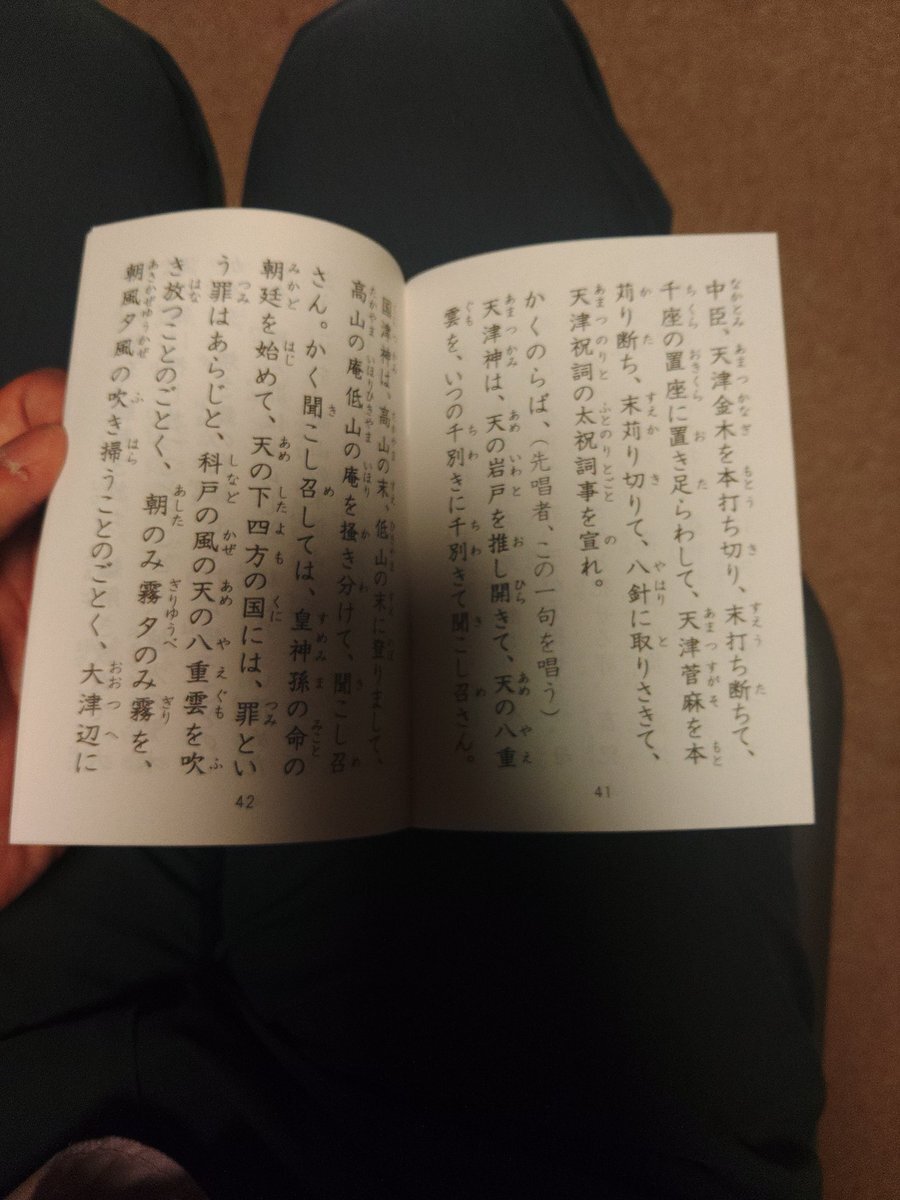 中臣、天津金木を本打ち切り、末打ち断ちて、
千座の置座に置き足らわして、天津菅麻を本
苅り断ち、末苅り切りて、八針に取りさきて、
天津祝詞の太祝詞事を宣れ。
かくのらば、(先唱者、この一句を唱う)
天津神は、天の岩戸を推し開きて、天の八重
雲を、いつの千別きに千別きて聞こし召さん。
41
国津神は、高山の末、低山の末に登りまして、
高山の庵低山の庵を掻き分けて、聞こし召
さん。かく聞こし召しては、皇神孫の命の
朝廷を始めて、天の下四方の国には、罪とい
う罪はあらじと、科戸の風の天の八重雲を吹
き放つことのごとく、朝のみ霧夕のみ霧を、
朝風夕風の吹き掃うことのごとく、大津辺に
42